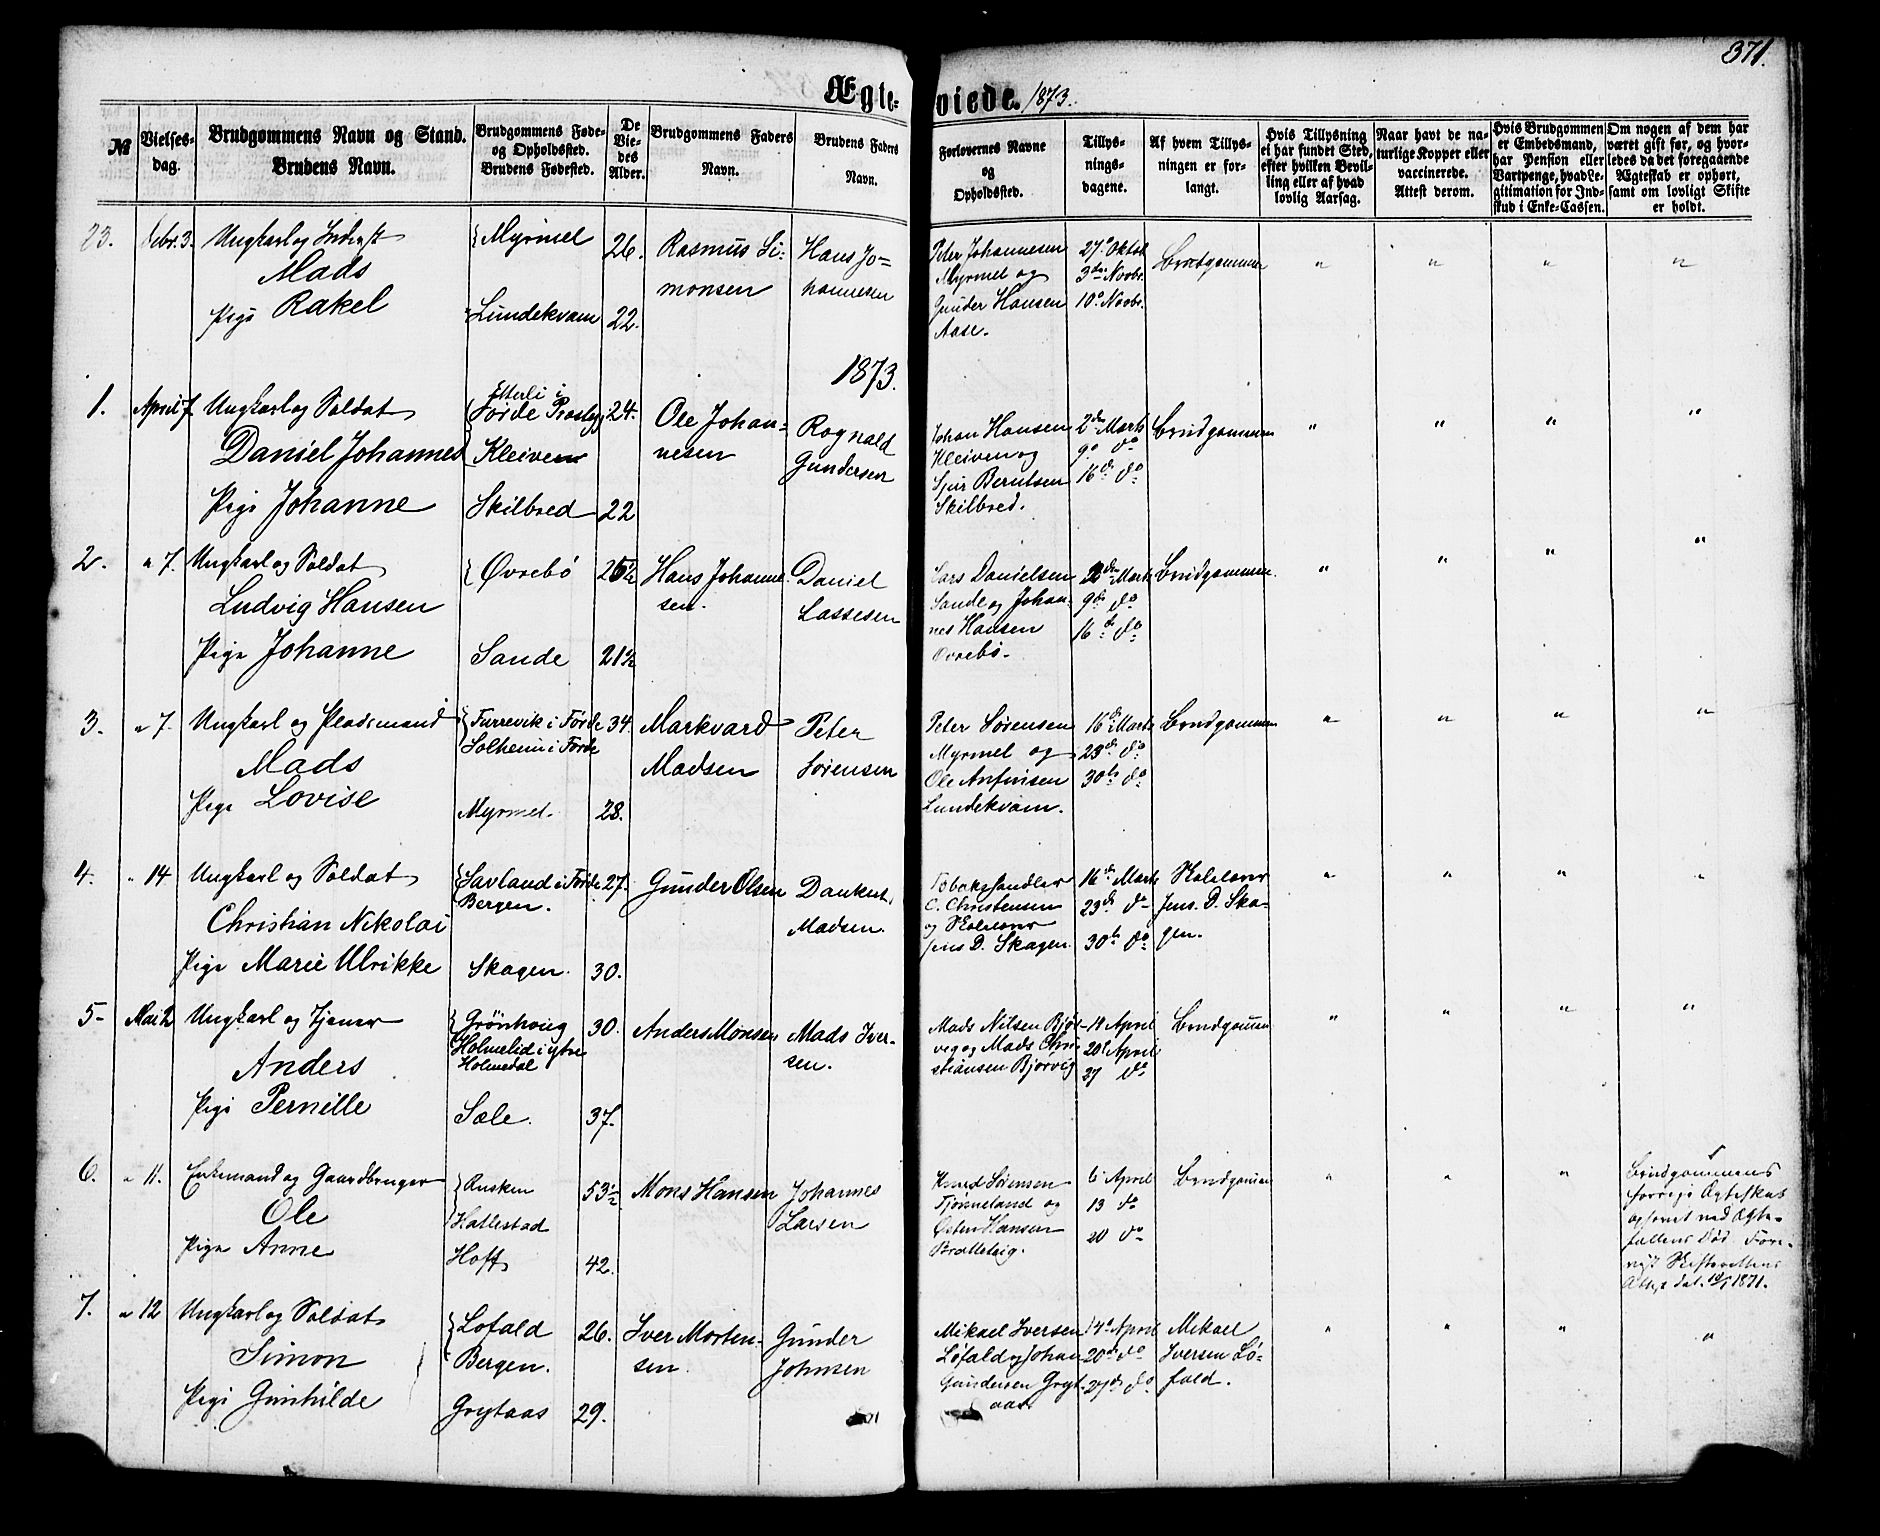 371.
Ægte-viede. 1873.
№
Vielses-dag.
Brudgommens Navn og Stand.
Brudens Navn.
Brudgommens Føde- og Opholdssted.
Brudens Fødested.
De Vie-des Alder.
Brudgommens Faders Navn.
Brudens Faders Navn.
Forlovernes Navne og Opholdssted.
Tillys-nings-dagene.
Af hvem Tillys-ningen er for-langt.
Hvis Tillysning ei har fundet Sted, efter hvilken Bevil-ling eller af hvad lovlig Aarsag.
Naar havt de na-turlige Kopper eller vaccinerede. Attest derom.
Hvis Brudgommen er Embedsmand, har Pension eller Vartpenge, hvad Le-gitimation for Ind-skud i Enke-Cassen.
Om nogen af dem har været gift før, og hvor-ledes da det foregaaende Ægteskab er ophørt, samt om lovligt Skifte er holdt.
23.
Febr. 3.
Ungkarl og
Mads
Pige Rakel
Myrmel
Lundekvam
26.
22.
Rasmus Si-
monsen
Hans Jo-
hannesen
Peter Johannesen
Myrmel og
Gunder Hansen
Aase.
27de Oktob
3die Novbr.
10de Novbr.
Brudgommen
" " " "
1873.
1.
April 7.
Ungkarl og Soldat
Daniel Johannes
Pige Johanne
Etterli i
Førde Præstegj
Kleiven
Skilbred
24.
22
Ole Johan-
nesen
Rognald
Gundersen
Johan Hansen
Kleiven og
Sjur Berntsen
Skilbred.
2den Marts
9de do
16de do
Brudgommen
" " " "
2.
" 7.
Ungkarl og Soldat
Ludvig Hansen
Pige Johanne
Øvrebø
Sande
25½
21½
Hans Johanne-
sen.
Daniel
Lassesen
Lars Danielsen
Sande og Johan-
nes Hansen
Øvrebø.
2den Marts
9de do
16de do
Brudgommen.
" " " "
3.
" 7.
Ungkarl og Pladsmand
Mads
Pige Lovise
Furrevik i Førde
Solheim i Førde
Myrmel.
34.
28.
Markvard
Madsen
Peter
Sørensen
Peter Sørensen
Myrmel og
Ole Anfinsen
Lundekvam.
16de Marts
23de do
30te do
Brudgommen
" " " "
4.
" 14
Ungkarl og Soldat
Christian Nikolai
Pige Marie Ulrikke
Savland i Førde
Bergen.
Skagen.
27.
30.
Gunder Olsen
Dankert
Madsen.
Tobakshandler
C. Christensen
og Skolelærer
Jens D. Skagen.
16de Marts
23de do
30te do
Skolelærer
Jens. D. Ska-
gen.
" " " "
5-
Mai 2
Ungkarl og Tjener
Anders
Pige Pernille
Grønhoug
Holmelid i ytre
Holmedal
Sæle.
30.
37.
Anders Monsen
Mads Iver-
sen.
Mads Nilsen Bjør-
vig og Mads Chri-
stiansen Bjørvig
April
20de April
27 do
Brudgommen
" " " "
6.
" 11.
Enkemand og Gaardbruger
Ole
Pige Anne
Hallestad
Hoff
53½
42.
Mons Hansen
Johannes
Larsen
Knud Sørensen
Tjønneland og
Østen Hansen
Bratteteig.
6 April
13 do
20 do
Brudgommen
" " "
Brudgommens
forrige Ægteskab
ophævet ved Ægte-
fællens Død. Fore-
vist Skifterettens
Attest dat. 1871.
7.
" 12
Ungkarl og Soldat
Simon
Pige Gunhilde
Løfald
Bergen.
Grytaas
26.
29.
Iver Morten-
sen.
Gunder
Johnsen
Mikael Iversen
Løfald og Johan
Gundersen Gryt-
aas
14de April
20de do
27de do
Mikael
Iversen Lø-
fald.
" " " "